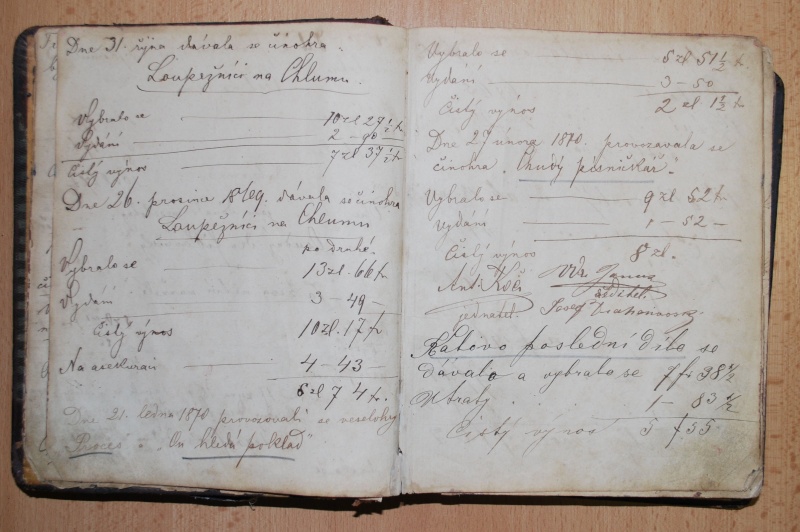 Dne 31. října dávala se činohra
Loupežníci na Chlumu.
Vybralo se 10 zl 27 1/2 kr
Vydání 2 - 90
Čistý výnos 7 zl 37 1/2 kr
Dne 26. prosince 1869. dávala se činohra
Loupežníci na Chlumu
po druhé.
Vybralo se 13 zl. 66 kr
Vydání 3 - 49 -
Čistý výnos 10 zl. 17 kr
Na asekuraci 4 - 43 -
5 zl 74 kr.
Dne 21. ledna 1870 provozovali se veselohry
"Proces" a "On hledá poklad"
Vybralo se 5 zl 51 1/2 kr
Vydání 3 - 50
Čistý výnos 2 zl 1 1/2 kr
Dne 27 února 1870. provozovala se
činohra "Chudý písničkář".
Vybralo se 9 zl 52 kr
Vydání 1 - 52 -
Čistý výnos 8 zl.
Ant. Kočí
ředitel.
jednatel. Josef
poslední díla se
dávalo a vybralo se 7 fr 38 1/2
Útraty 1 - 83 1/2
Čistý výnos 5 f 55